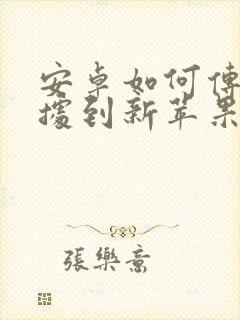 安卓如何傳
據到新苹果
張樂意